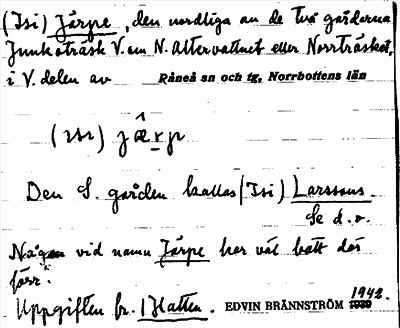 (Isi) Järpe, den nordliga av de två gårdarna
Junkoträsk V. om N. Altervattnet eller Norrträsket,
i V. delen av Råneå sn och tg, Norrbottens län
(isi) jæ̂rp
Den S. gården kallas (Isi) Larssons.
Se d. o.
Någon vid namn Järpe har väl bott där
förr.
Uppgiften fr. 1 Hatten. EDVIN BRÄNNSTRÖM 1939 1942.